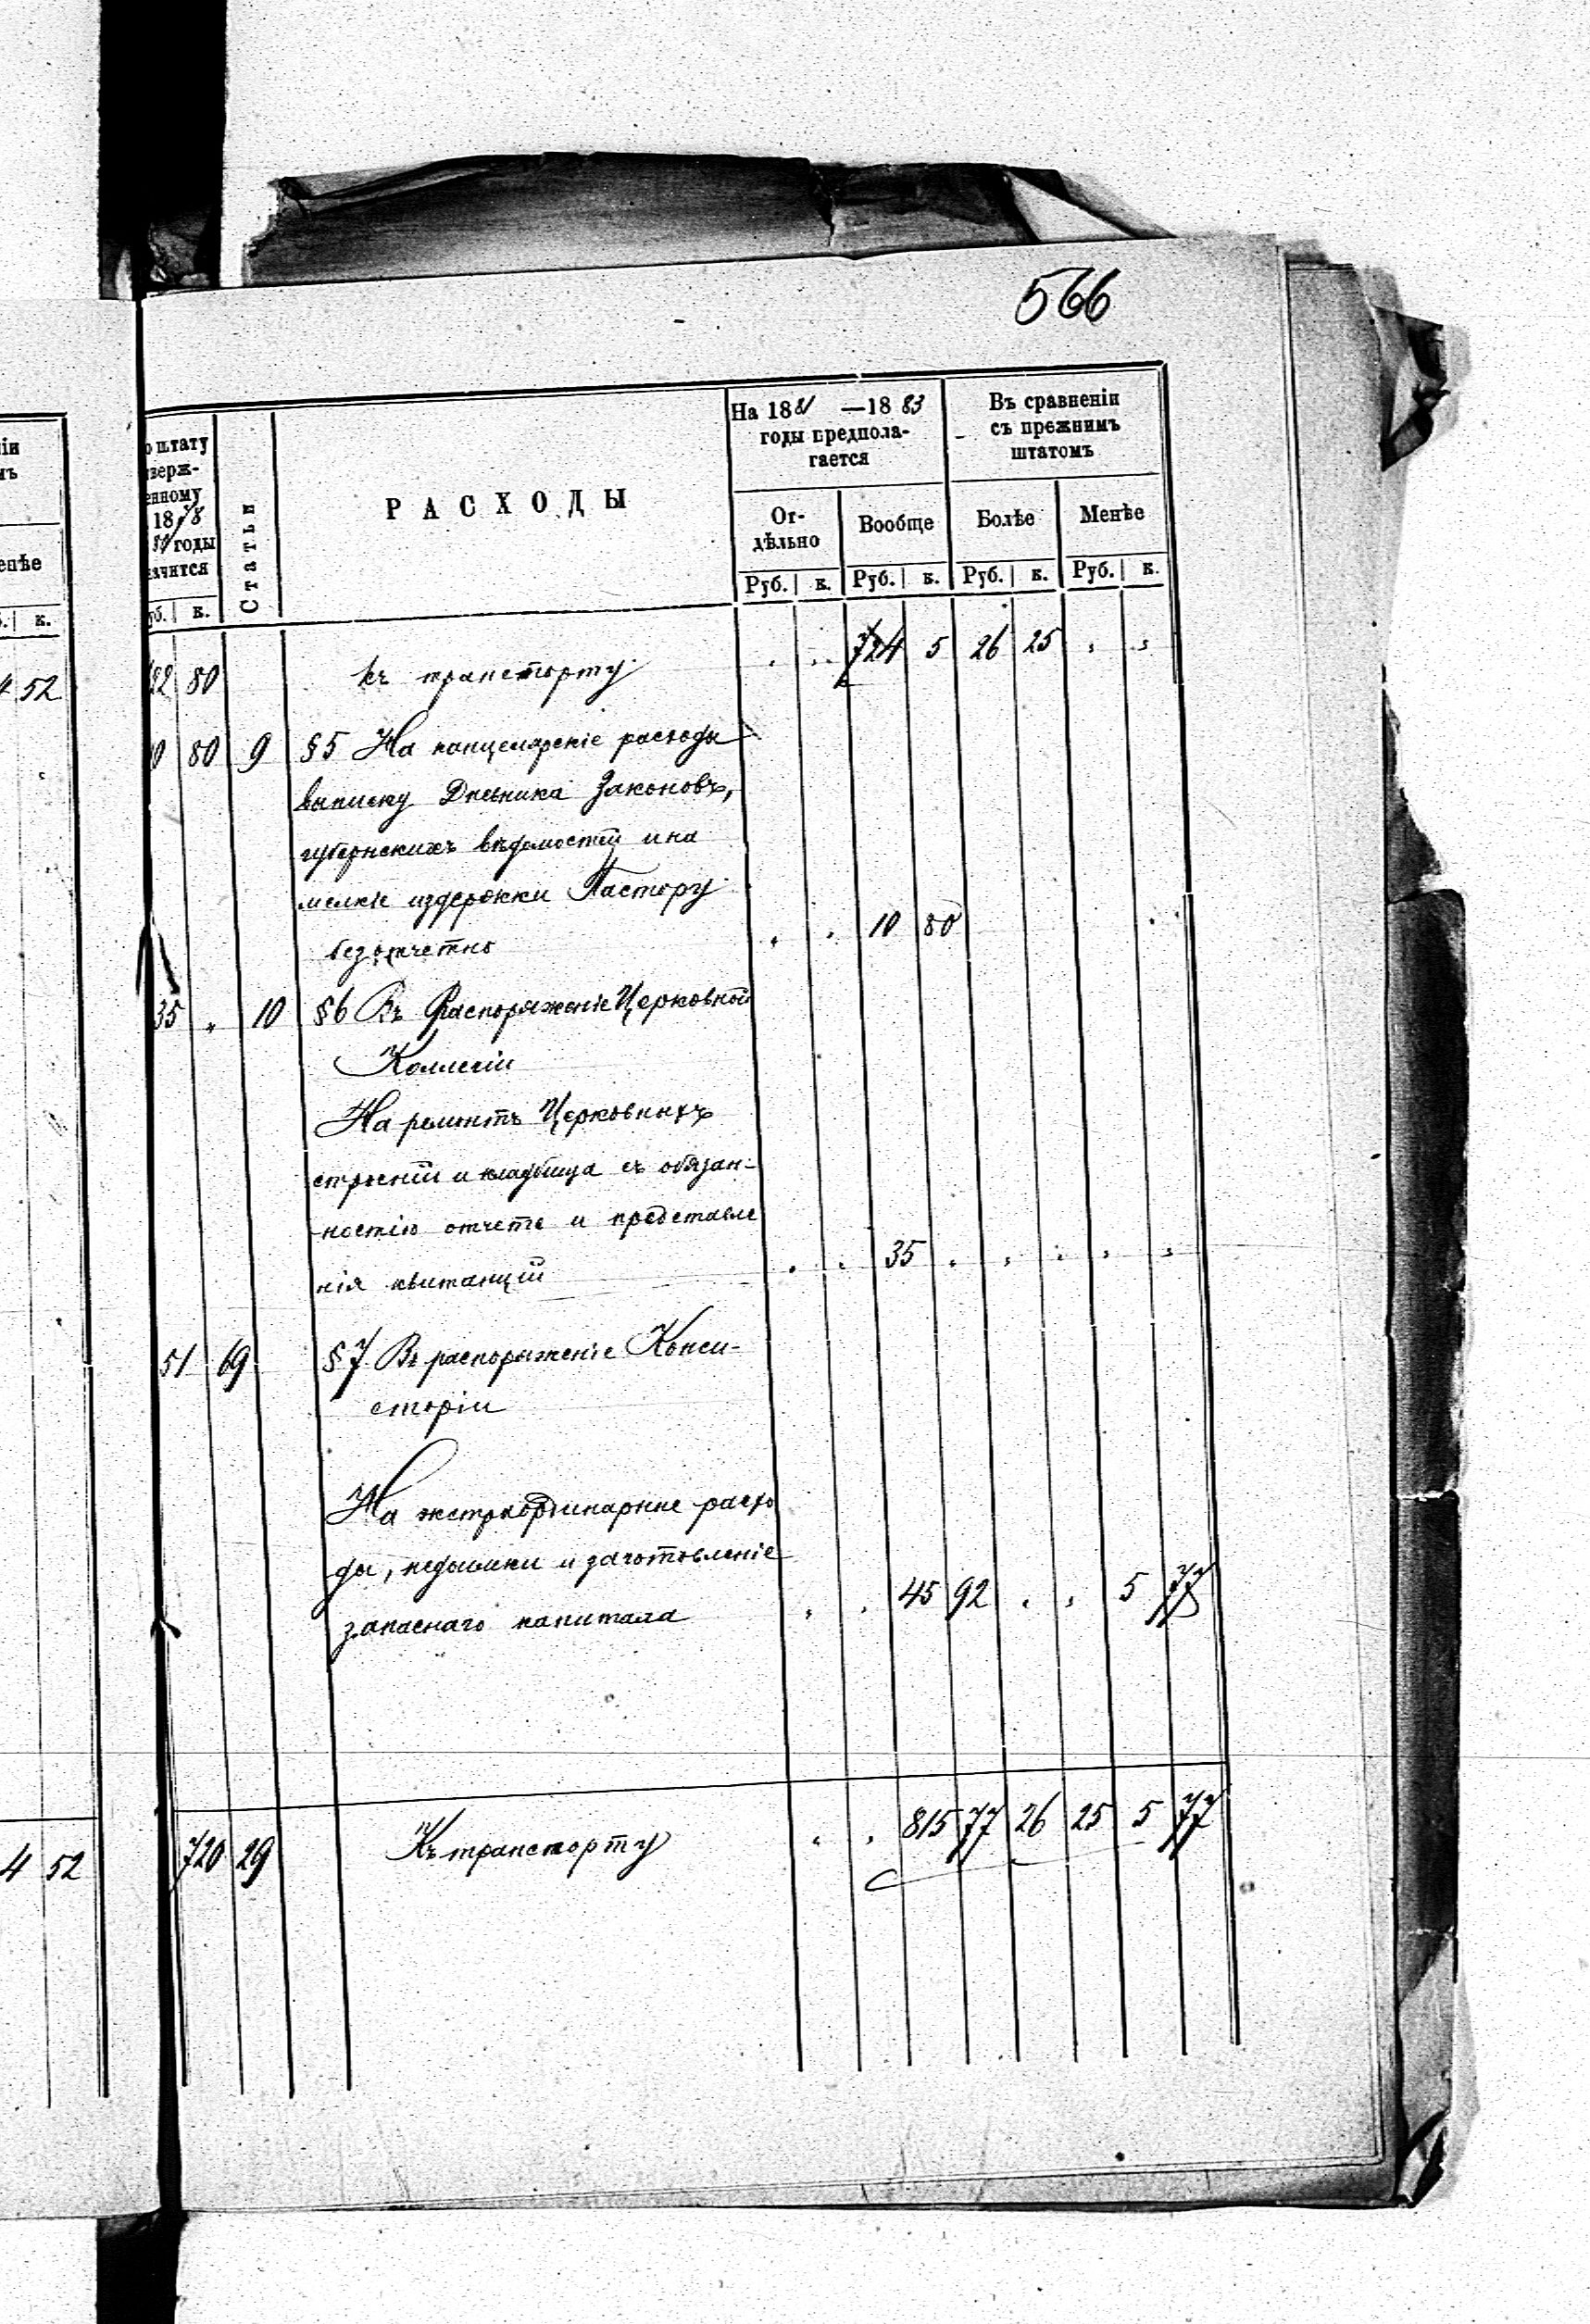 566
ін
мъ
енѣе
к.
4 52
4 52
о штату
тверж-
енному
1878
80 годы
начится
уб. к.
Статьи
РАСХОДЫ
На 1881 —1883
годы предпола-
гается
От-
дѣльно
Вообще
Руб. к. Руб. к.
Въ сравненіи
съ прежнимъ
штатомъ
Болѣе Менѣе
Руб. к. Руб. к.
22 80 къ транспорту 724 5 26 25
0 80 9 §5 На канцелярскіе расходы
выписку Дневника Законовъ,
губернскихъ вѣдомостей и на
мелкіе издержки Пастору
безотчетно 10 80
35 " 10 §6 Въ Распоряженіе Церковной
Коллегіи
На ремонтъ Церковныхъ
строеній и кладбища съ обязан-
ностію отчета и представле
нія квитанцій 35
51 69 §7 Въ распоряженіе Конси-
сторіи
На экстраординарные расхо
ды, недоимки и заготовленіе
запаснаго капитала 45 92 5 77
720 29 Къ транспорту 815 77 26 25 5 77